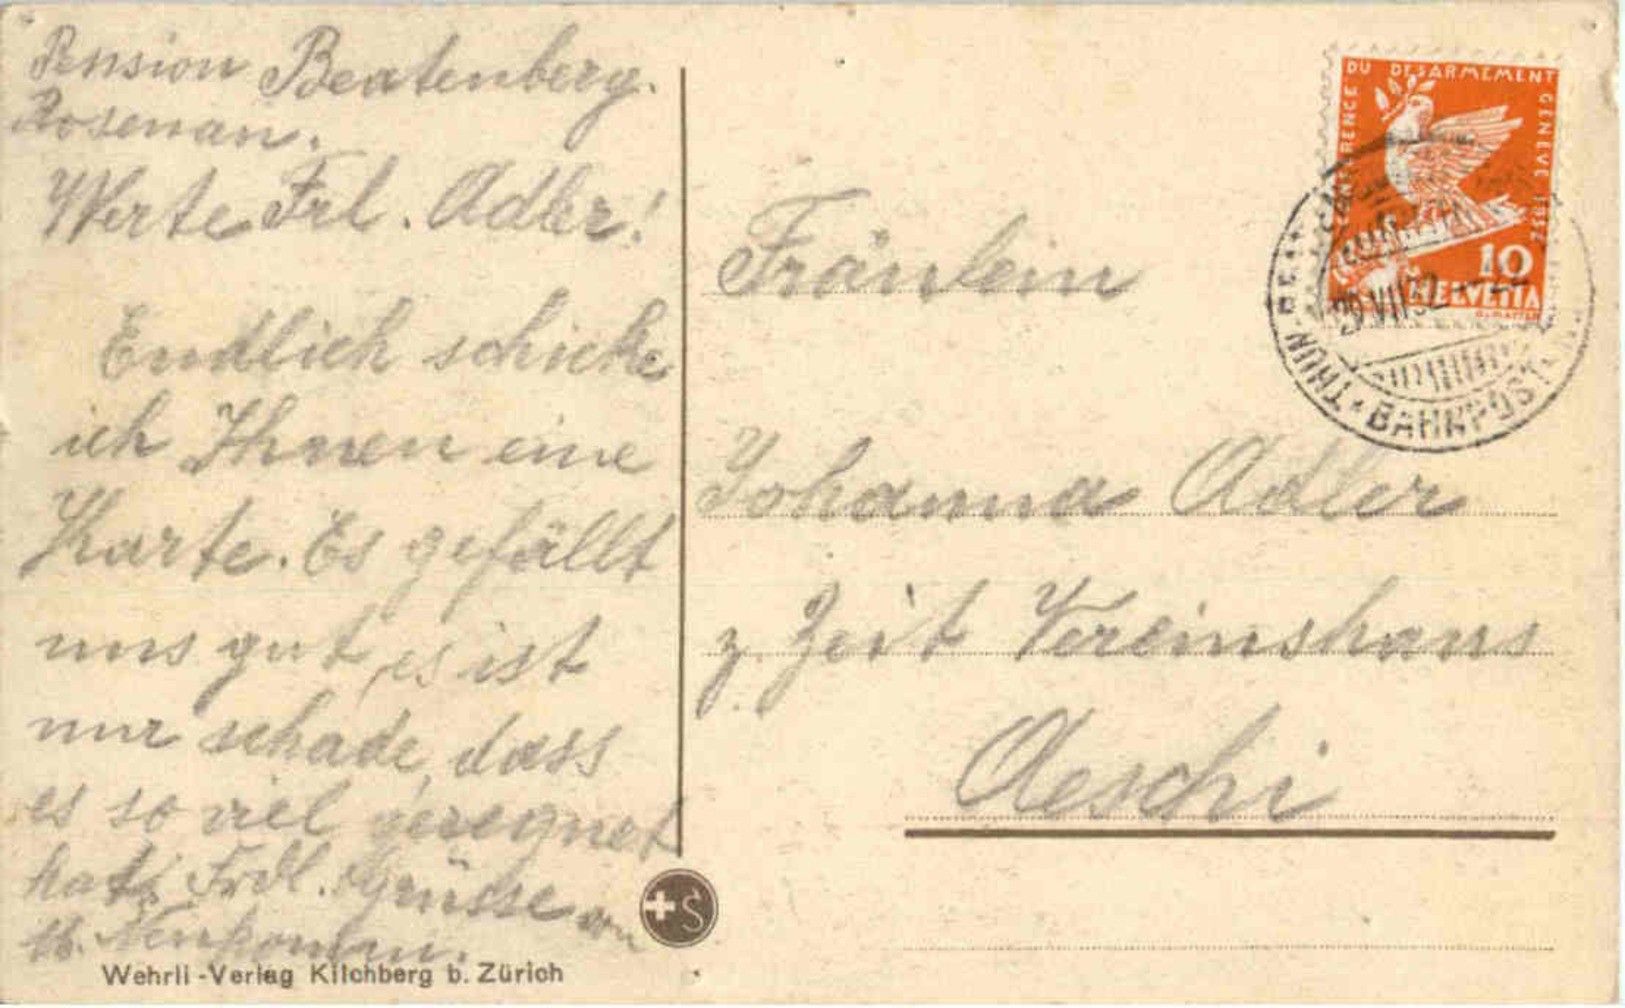 Pension Beatenberg.
Rosenau.
Werte Frl. Adler!
Endlich schicke
ich Ihnen eine
Karte. Es gefällt
uns gut, es ist
nur schade, dass
es so viel geregnet
hat. Frdl. Grüsse von
Wehrli-Verlag Kilchberg b. Zürich
+S
Fräulein
Johanna Adler
z. Zeit Vereinshaus
Aeschi
CONFERENCE DU DESARMEMENT GENEVE 1932
10
HELVETIA
29.VII.32
THUN · BAHNPOST